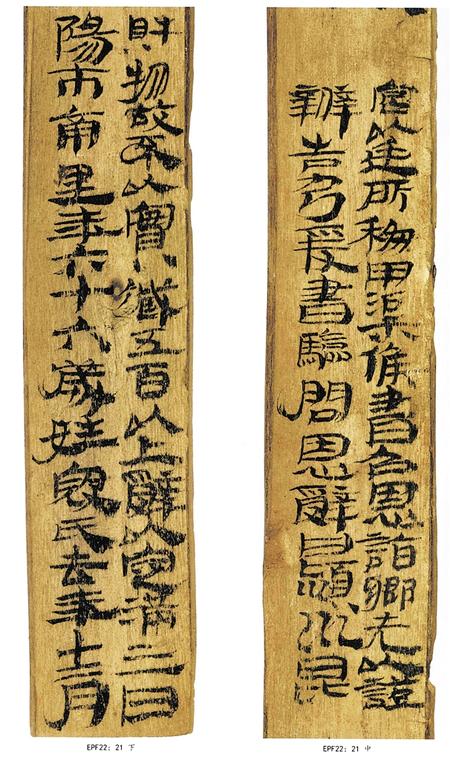 宮以廷所移甲渠候書召恩詣鄉先以證
辨告乃爰書驗問恩辭曰潁川昆
財物故不以實臧五百以上辭以定滿三日
陽市南里年六十六歲姓寇氏去年十二月
EPF22:21 下
EPF22:21 中